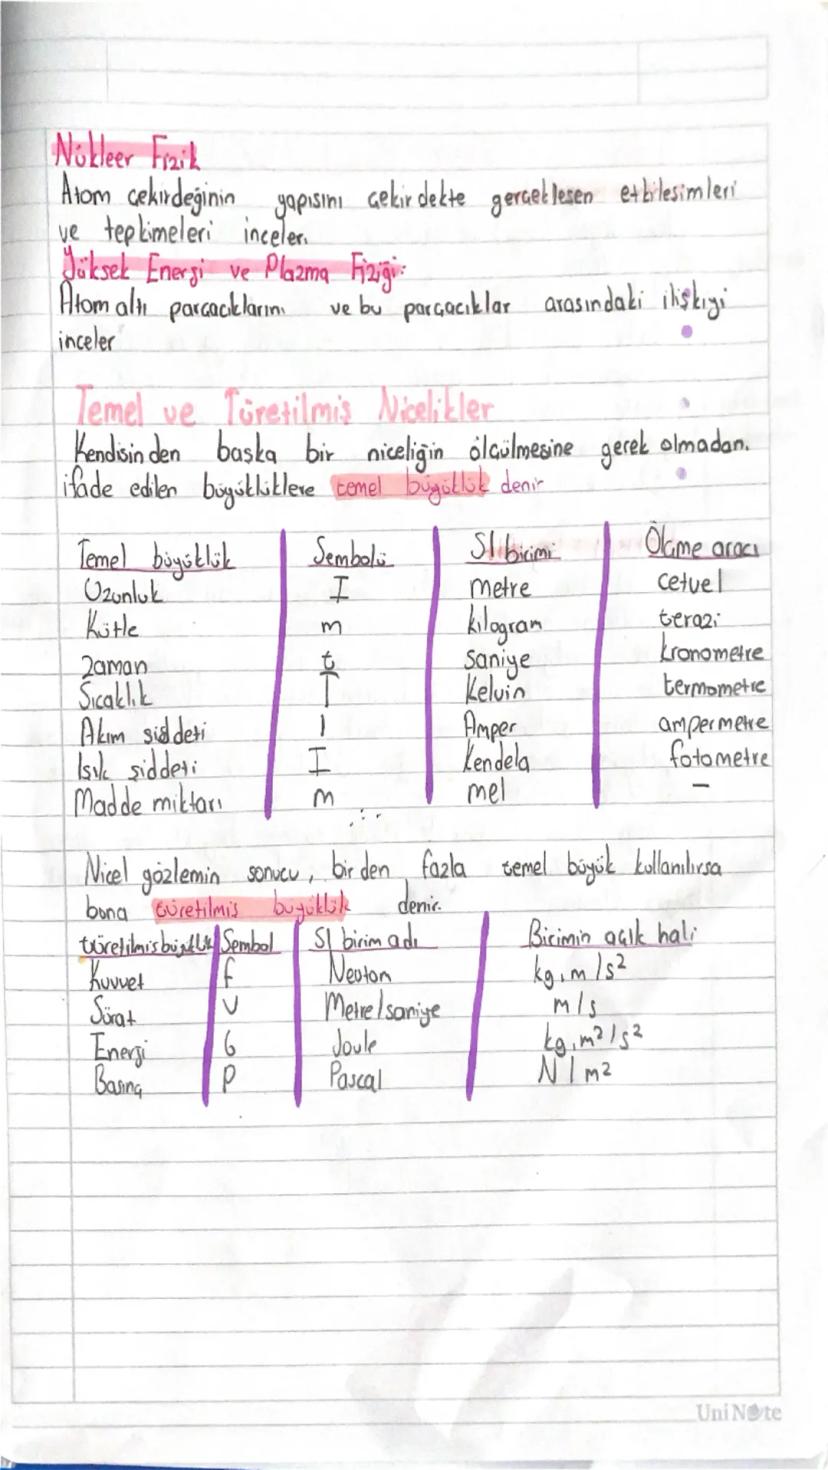 Nükleer Fizik
Atom çekirdeğinin yapısını çekirdekte gerçekleşen etkilesimleri
ve tepkimeleri inceler.
Yüksek Energi ve Plazma Fiziği:
Atom altı parçacıklarını ve bu parçacıklar arasındaki ilişkiyi
inceler
Temel ve Türetilmis Nicelikler
Kendisinden baska bir niceliğin ölçülmesine gerek olmadan.
ifade edilen büyüklüklere temel büyüklük denir
Temel büyüklük Sembolü SI birimi Ölçme aracı
Uzunluk I metre cetvel
Kütle m kilogram terazi
Zaman t saniye kronometre
Sıcaklık T Kelvin termometre
Akım siddeti I Amper ampermetre
Isık şiddeti I Kendela fotometre
Madde miktarı m mel –
Nicel gözlemin sonucu, birden fazla temel büyük kullanılırsa
buna türetilmis büyüklük denir.
türetilmis büyüklük Sembol SI birim adı Birimin açık hali
Kuvvet f Newton kg.m/s²
Sürat v Metre/saniye m/s
Energi G Joule kg.m²/s²
Basınç P Pascal N/m²
UniNote